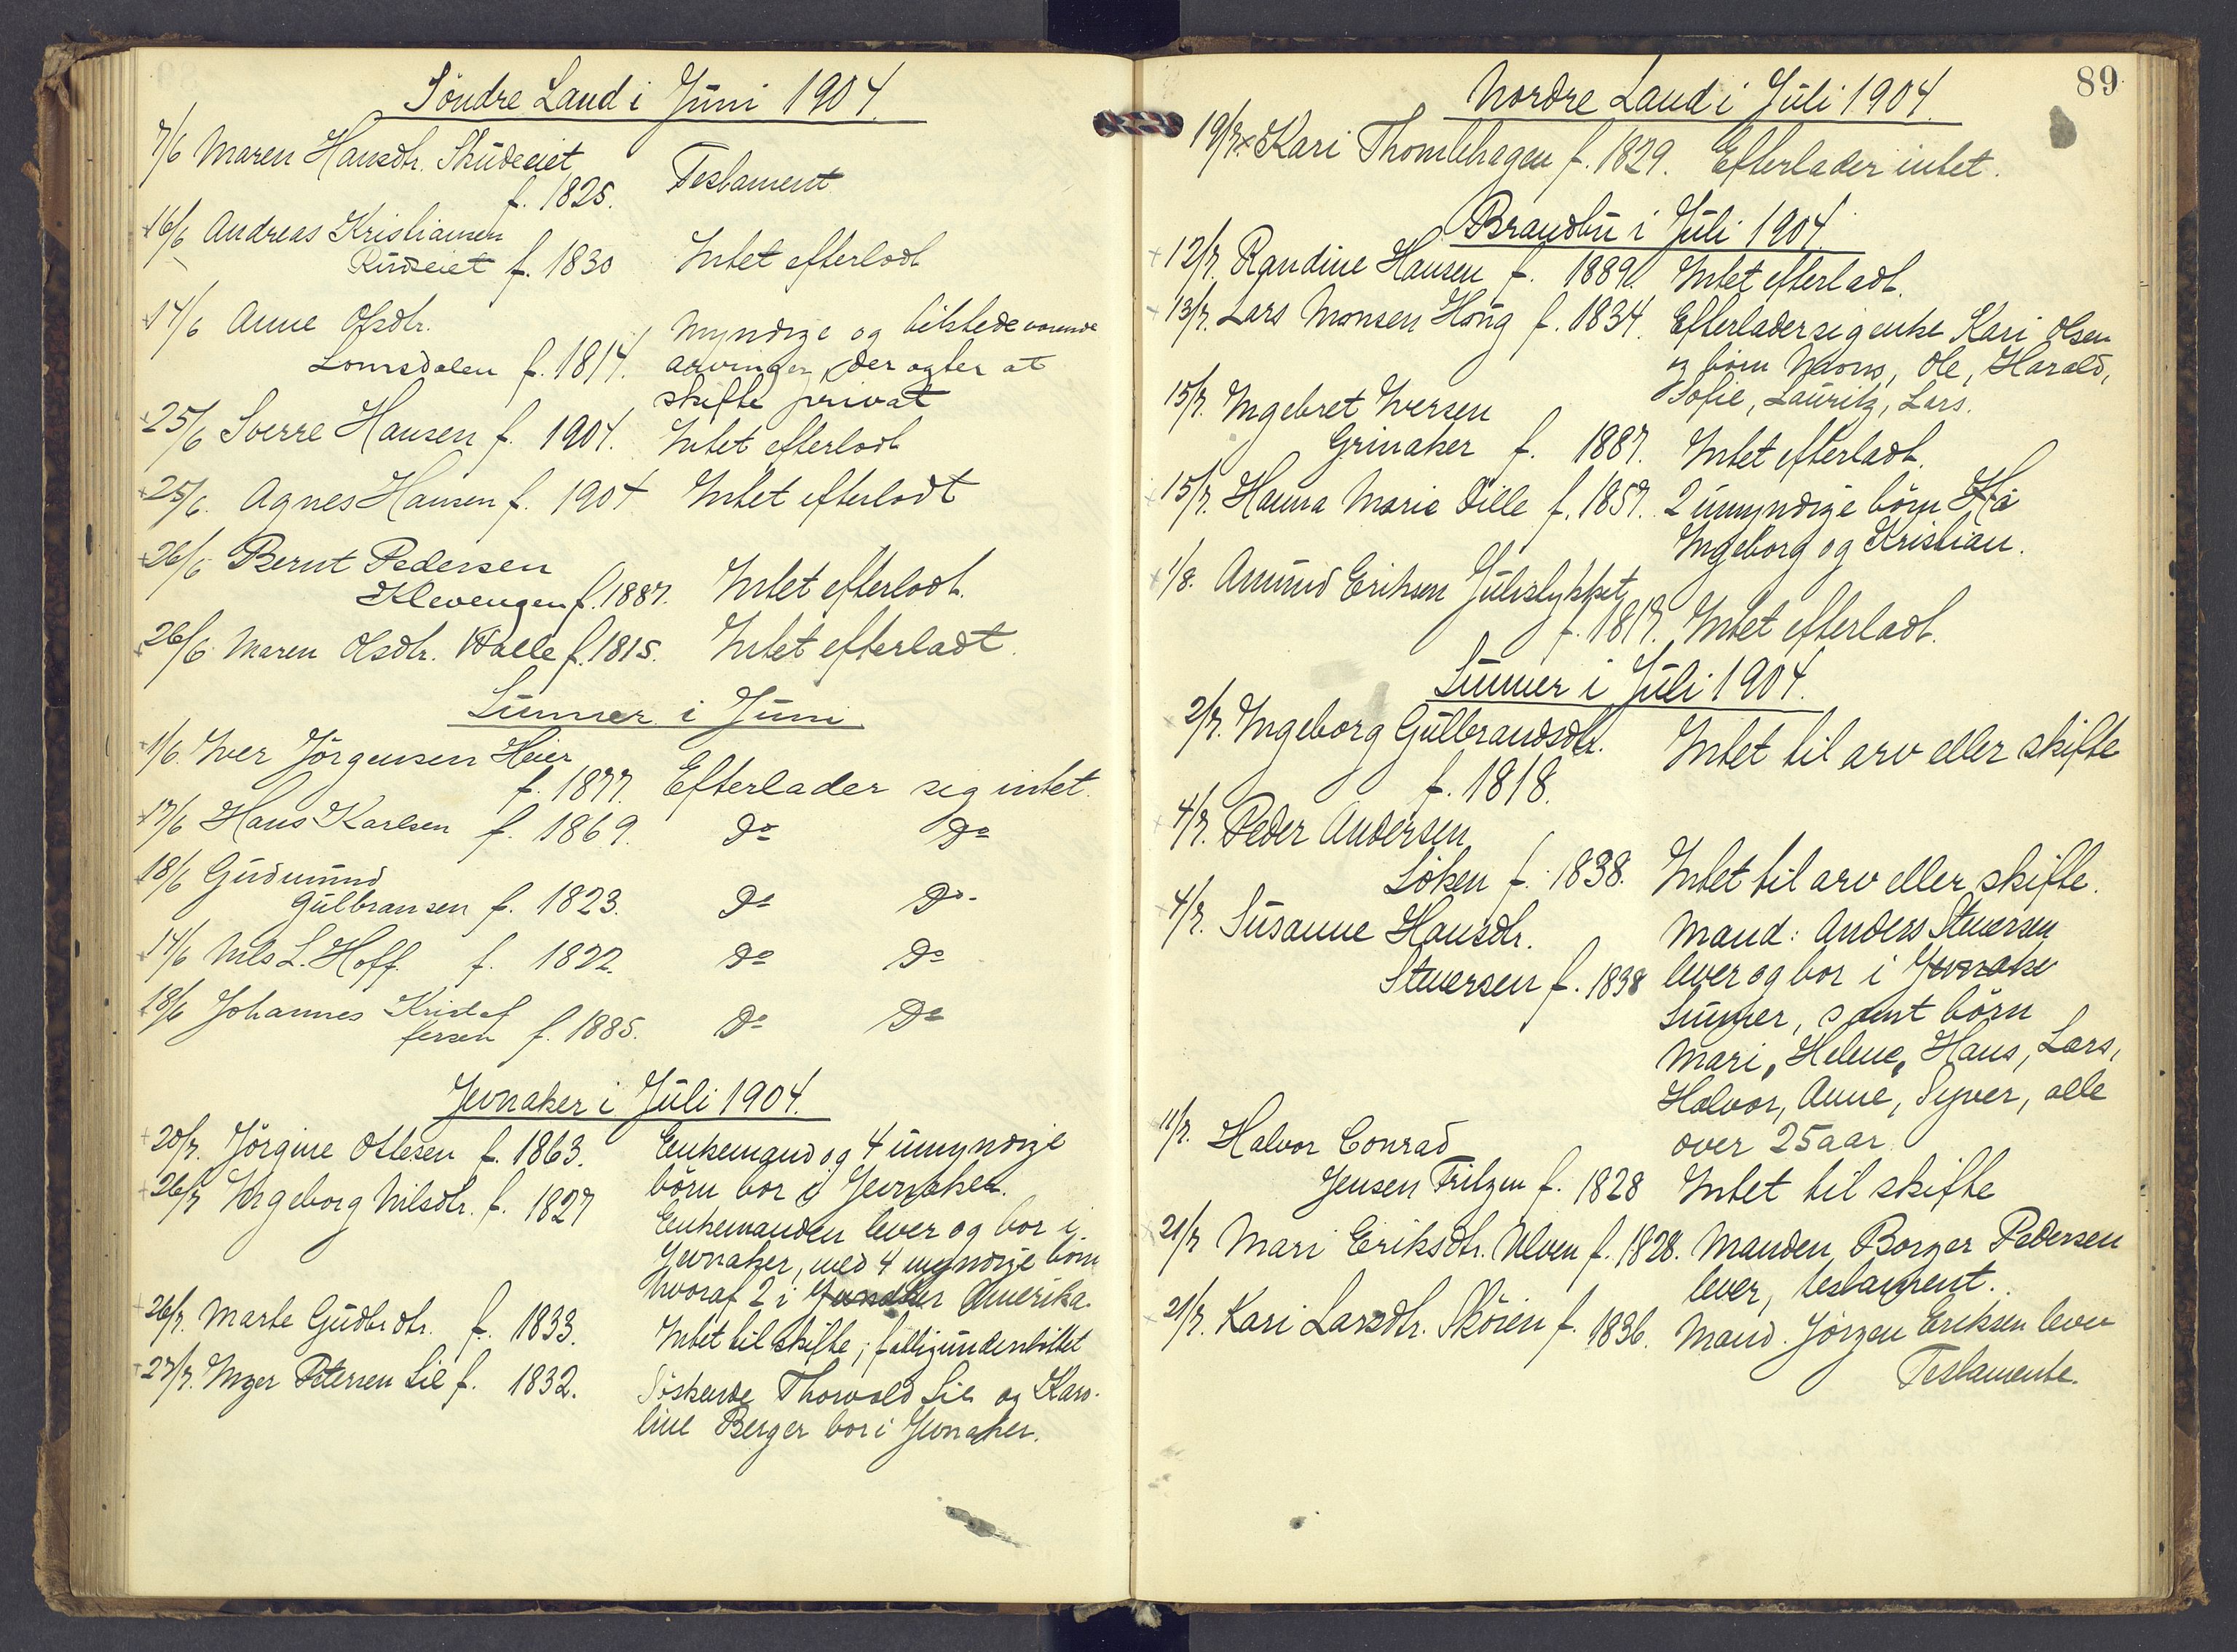 Söndre Land i Juni 1904.
7/6 Maren Hansdtr. Skudeeiet
f. 1825. Testament
16/6 Andreas Kristiansen
Rudseiet f. 1830 Intet efterladt
14/6 Anne Olsdtr. Myndige og tilstedeværende
Lomsdalen f. 1814. arvinger, der agter at
skifte privat
25/6 Sverre Hansen f. 1904. Intet efterladt
25/6. Agnes Hansen f. 1904 Intet efterladt
26/6 Bernt Pedersen
Klevengen f. 1887. Intet efterladt.
26/6. Maren Olsdtr. Walle f. 1815. Intet efterladt.
Lunner i Juni
1/6. Iver Jörgensen Heier
f. 1877. Efterlader sig intet.
17/6 Hans Karlsen f. 1869. Do Do
18/6 Gudmund
Gulbransen f. 1823. Do Do
14/6 Nils L. Hoff. f. 1822. Do Do
18/6 Johannes Kristof
fersen f. 1885. Do Do
Jevnaker i Juli 1904.
20/7. Jörgine Ottesen f. 1863. Enkemand og 4 umyndige
börn bor i Jevnaker.
26/7 Ingeborg Nilsdtr. f. 1827 Enkemanden lever og bor i
Jevnaker, med 4 myndige börn
hvoraf 2 i Jevnaker Amerika.
26/7. Marte Gudbrdtr. f. 1833. Intet til skifte, fattigunderstöttet
27/7. Inger Petersen Lie f. 1832. Söskende Thorvald Lie og Karo-
line Berger bor i Jevnaker.
89
Nordre Land i Juli 1904.
19/7. Kari Thomlehagen f. 1829. Efterlader intet.
Brandbu i Juli 1904.
12/7. Randine Hansen f. 1889. Intet efterladt.
13/7. Lars Monsen Hong f. 1834. Efterlader sig enke Kari Olsen
og börn Mons, Ole, Harald,
Sofie, Lauritz, Lars.
15/7. Ingebret Iversen
Grinaker f. 1887. Intet efterladt.
15/7. Hanna Marie Dille f. 1857. 2 umyndige börn
Ingeborg og Kristian.
1/8. Amund Eriksen Julistykket
f. 1817. Intet efterladt.
Lunner i Juli 1904.
2/7. Ingeborg Gulbrandsdtr. Intet til arv eller skifte
f. 1818.
4/7. Peder Andersen
Löken f. 1838. Intet til arv eller skifte.
4/7. Susanne Hansdtr. Mand: Anders Stenersen
Stenersen f. 1838 lever og bor i Jevnaker
Lunner, samt börn
Mari, Helene, Hans, Lars,
Halvor, Anne, Syver, alle
over 25 aar.
11/7. Halvor Conrad
Jensen Fritzen f. 1828 Intet til skifte
21/7 Mari Eriksdtr. Ulven f. 1828. Manden Borger Pedersen
lever, testament.
21/7. Kari Larsdtr. Sköien f. 1836. Mand. Jörgen Eriksen lever
Testamente.